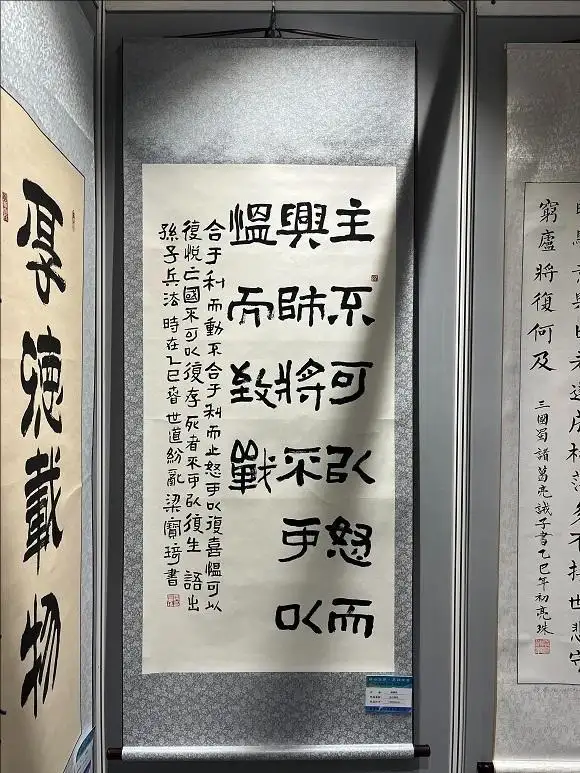 與日去遂成枯落多不接世悲守
窮廬將復何及
三國蜀諸葛亮誡子書乙巳年初亮珠
主不可以怒而
興師將不可以
慍而致戰
合于利而動不合于利而止怒可以復喜慍可以
復悅亡國不可以復存死者不可以復生 語出
孫子兵法 時在乙巳春 世道紛亂 梁寶琦書
厚德載物